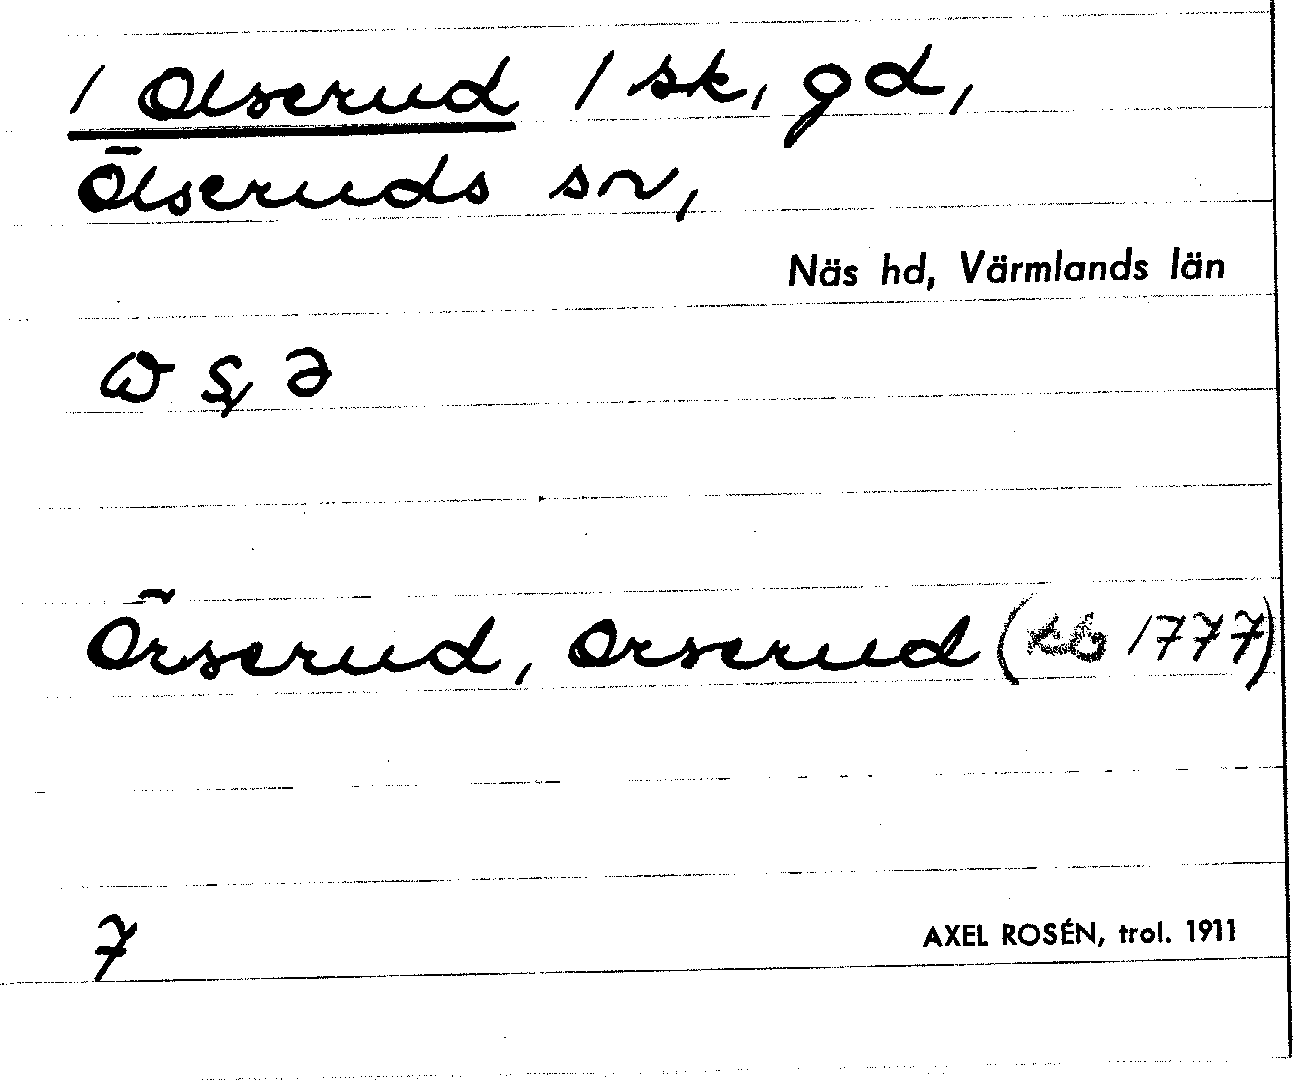 / Olserud / sk, gd,
Ölseruds sn,
Näs hd, Värmlands län
Örserud, Orserud (kb 1777)
7
AXEL ROSÉN, trol. 1911